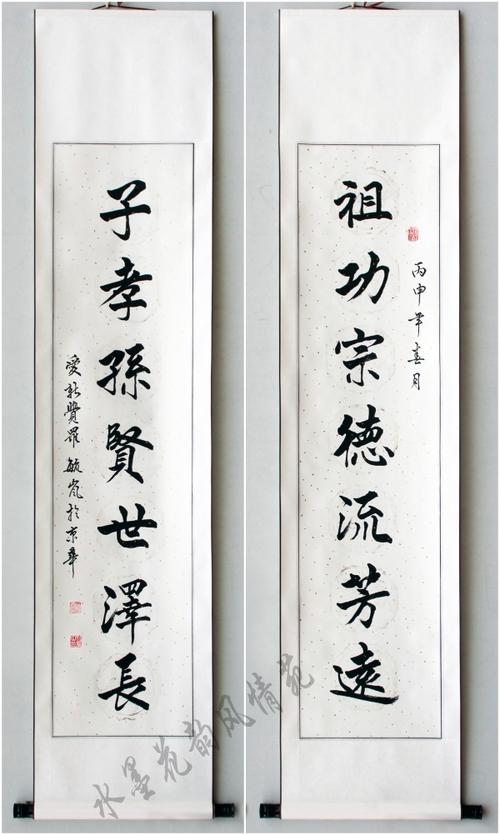 祖功宗德流芳遠
丙申年春月
子孝孫賢世澤長
愛新覺羅 毓嵐於京華
水墨花韵风情苑